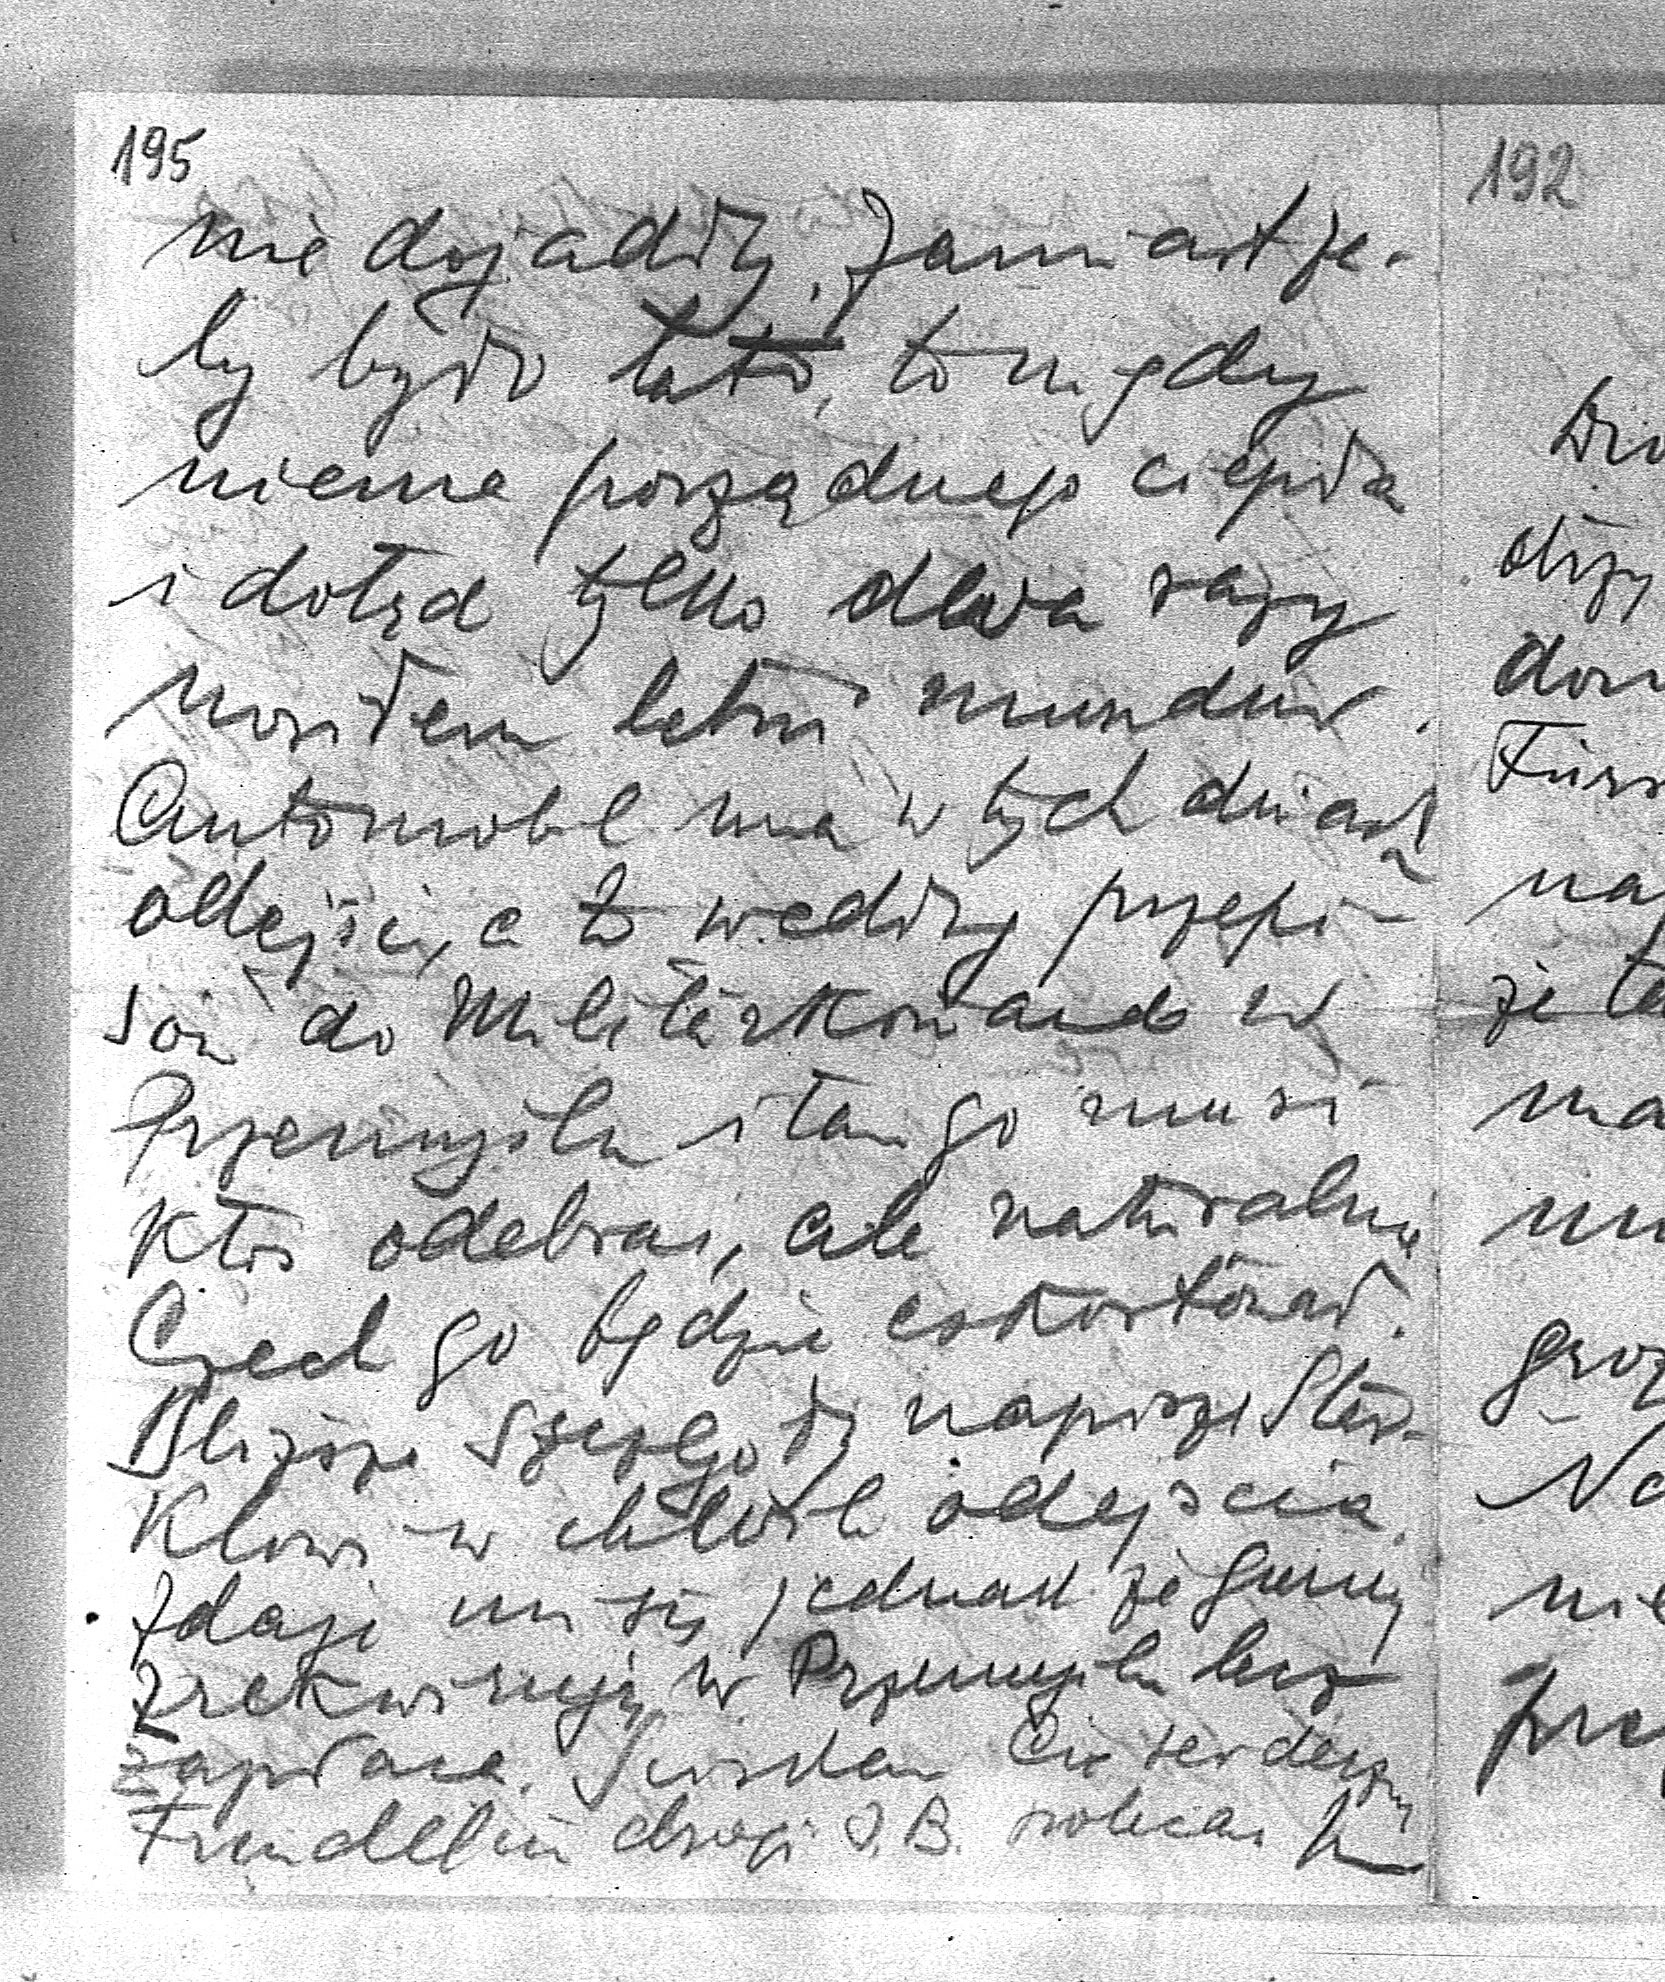 195
nie dojadły. Zamiast że-
by było lato, to nigdy
niema porządnego ciepła
i dotąd tylko dwa razy
nosiłem letni mundur.
Automobil ma w tych dniach
odejść, a to wedłzg przepi-
sów do Militärkomando w
Przemyślu i tam go musi
ktoś odebrać, ale naturalnie
Czech go będzie eskortował.
Bliższe szczegóły napiszę
klowi w chwili odejścia.
Zdaje mi się jednak że gumy
zrekwirują w Przemyślu bez
zapłaca. Ściskam Cię serdeczny
drogi J. B. polecam
192